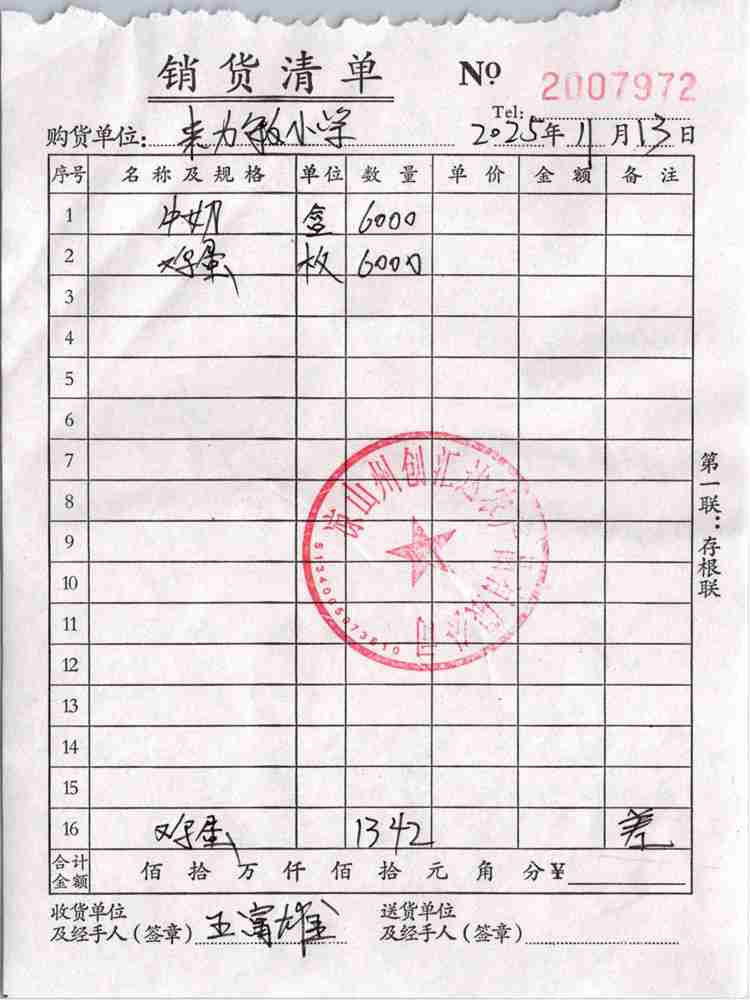 销货清单 № 2007972
Tel:
购货单位: 来力敏小学 2025年11月13日
序号 名称及规格 单位 数量 单价 金额 备注
1 中奶 盒 6000
2 鸡蛋 枚 6000
3
4
5
6
7
8
9
10
11
12
13
14
15
16 鸡蛋 1342 差
合计金额 佰拾万仟佰拾元角分¥
收货单位及经手人(签章) 王富雄
送货单位及经手人(签章)
第一联:存根联
凉山州创汇达